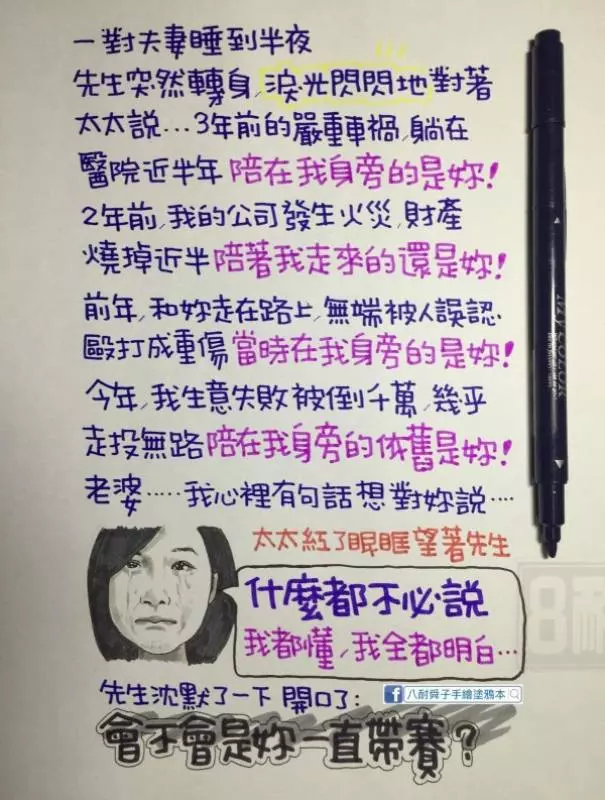 一對夫妻睡到半夜
先生突然轉身,淚光閃閃地對著
太太說...3年前的嚴重車禍,躺在
醫院近半年陪在我身旁的是妳!
2年前,我的公司發生火災,財產
燒掉近半陪著我走來的還是妳!
前年,和妳走在路上,無端被人誤認
毆打成重傷當時在我身旁的是妳!
今年,我生意失敗被倒千萬,幾乎
走投無路陪在我身旁的依舊是妳!
老婆.....我心裡有句話想對妳說....
太太紅了眼眶望著先生
什麼都不必說
我都懂,我全都明白...
f 八耐舜子手繪塗鴉本
先生沈默了一下 開口了:
會不會是妳一直帶賽?